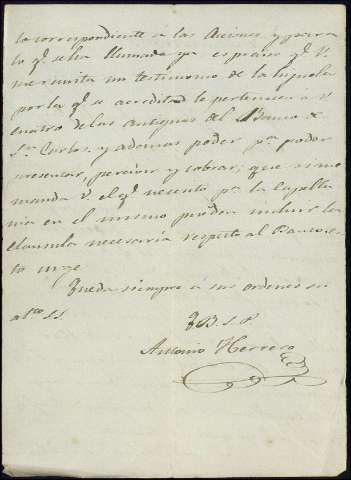 lo correspondiente a las Acciones, y para
lo q.e se ha llamado ya es preciso q.e V.
me remita un testimonio de la
por la q.e se acredita le pertenecen a V.
cuatro de las antiguas del Banco de
S.n Carlos, y ademas poder p.a poder
presentar, percivir y cobrar; que si me
manda V. el q.e necesito p.a la Capella
nia en el mismo pueden incluir la
clausula necesaria respecto al Banco. es
to urge
Queda siempre a sus ordenes su
at.to S.S.
Q.B.S.M.
Antonio Herrero